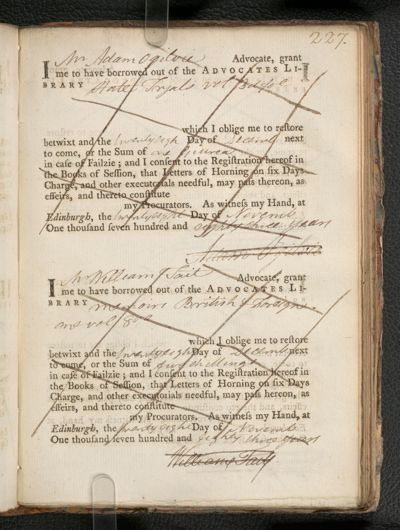 227.
I Mr Adam Ogilvie Advocate, grant
me to have borrowed out of the ADVOCATES LI-
BRARY State Tryals vol
which I oblige me to reſtore
betwixt and the twenty eigh Day of Decemb next
to come, or the Sum of one guinea
in caſe of Failzie ; and I conſent to the Regiſtration hereof in
the Books of Seſſion, that Letters of Horning on ſix Days
Charge, and other executorials needful, may paſs thereon, as
effeirs, and thereto conſtitute
my Procurators. As witneſs my Hand, at
Edinburgh, the twenty eight Day of Novemb
One thouſand ſeven hundred and eighty three years
Adam Ogilvie
I Mr William Tait Advocate, grant
me to have borrowed out of the ADVOCATES LI-
BRARY memoirs British & Foreign
one vol 8o
which I oblige me to reſtore
betwixt and the twenty eight Day of Decemb next
to come, or the Sum of shillings
in caſe of Failzie ; and I conſent to the Regiſtration hereof in
the Books of Seſſion, that Letters of Horning on ſix Days
Charge, and other executorials needful, may paſs hereon, as
effeirs, and thereto conſtitute
my Procurators. As witneſs my Hand, at
Edinburgh, the twenty eight Day of Novemb
One thouſand ſeven hundred and eighty three years
William Tait